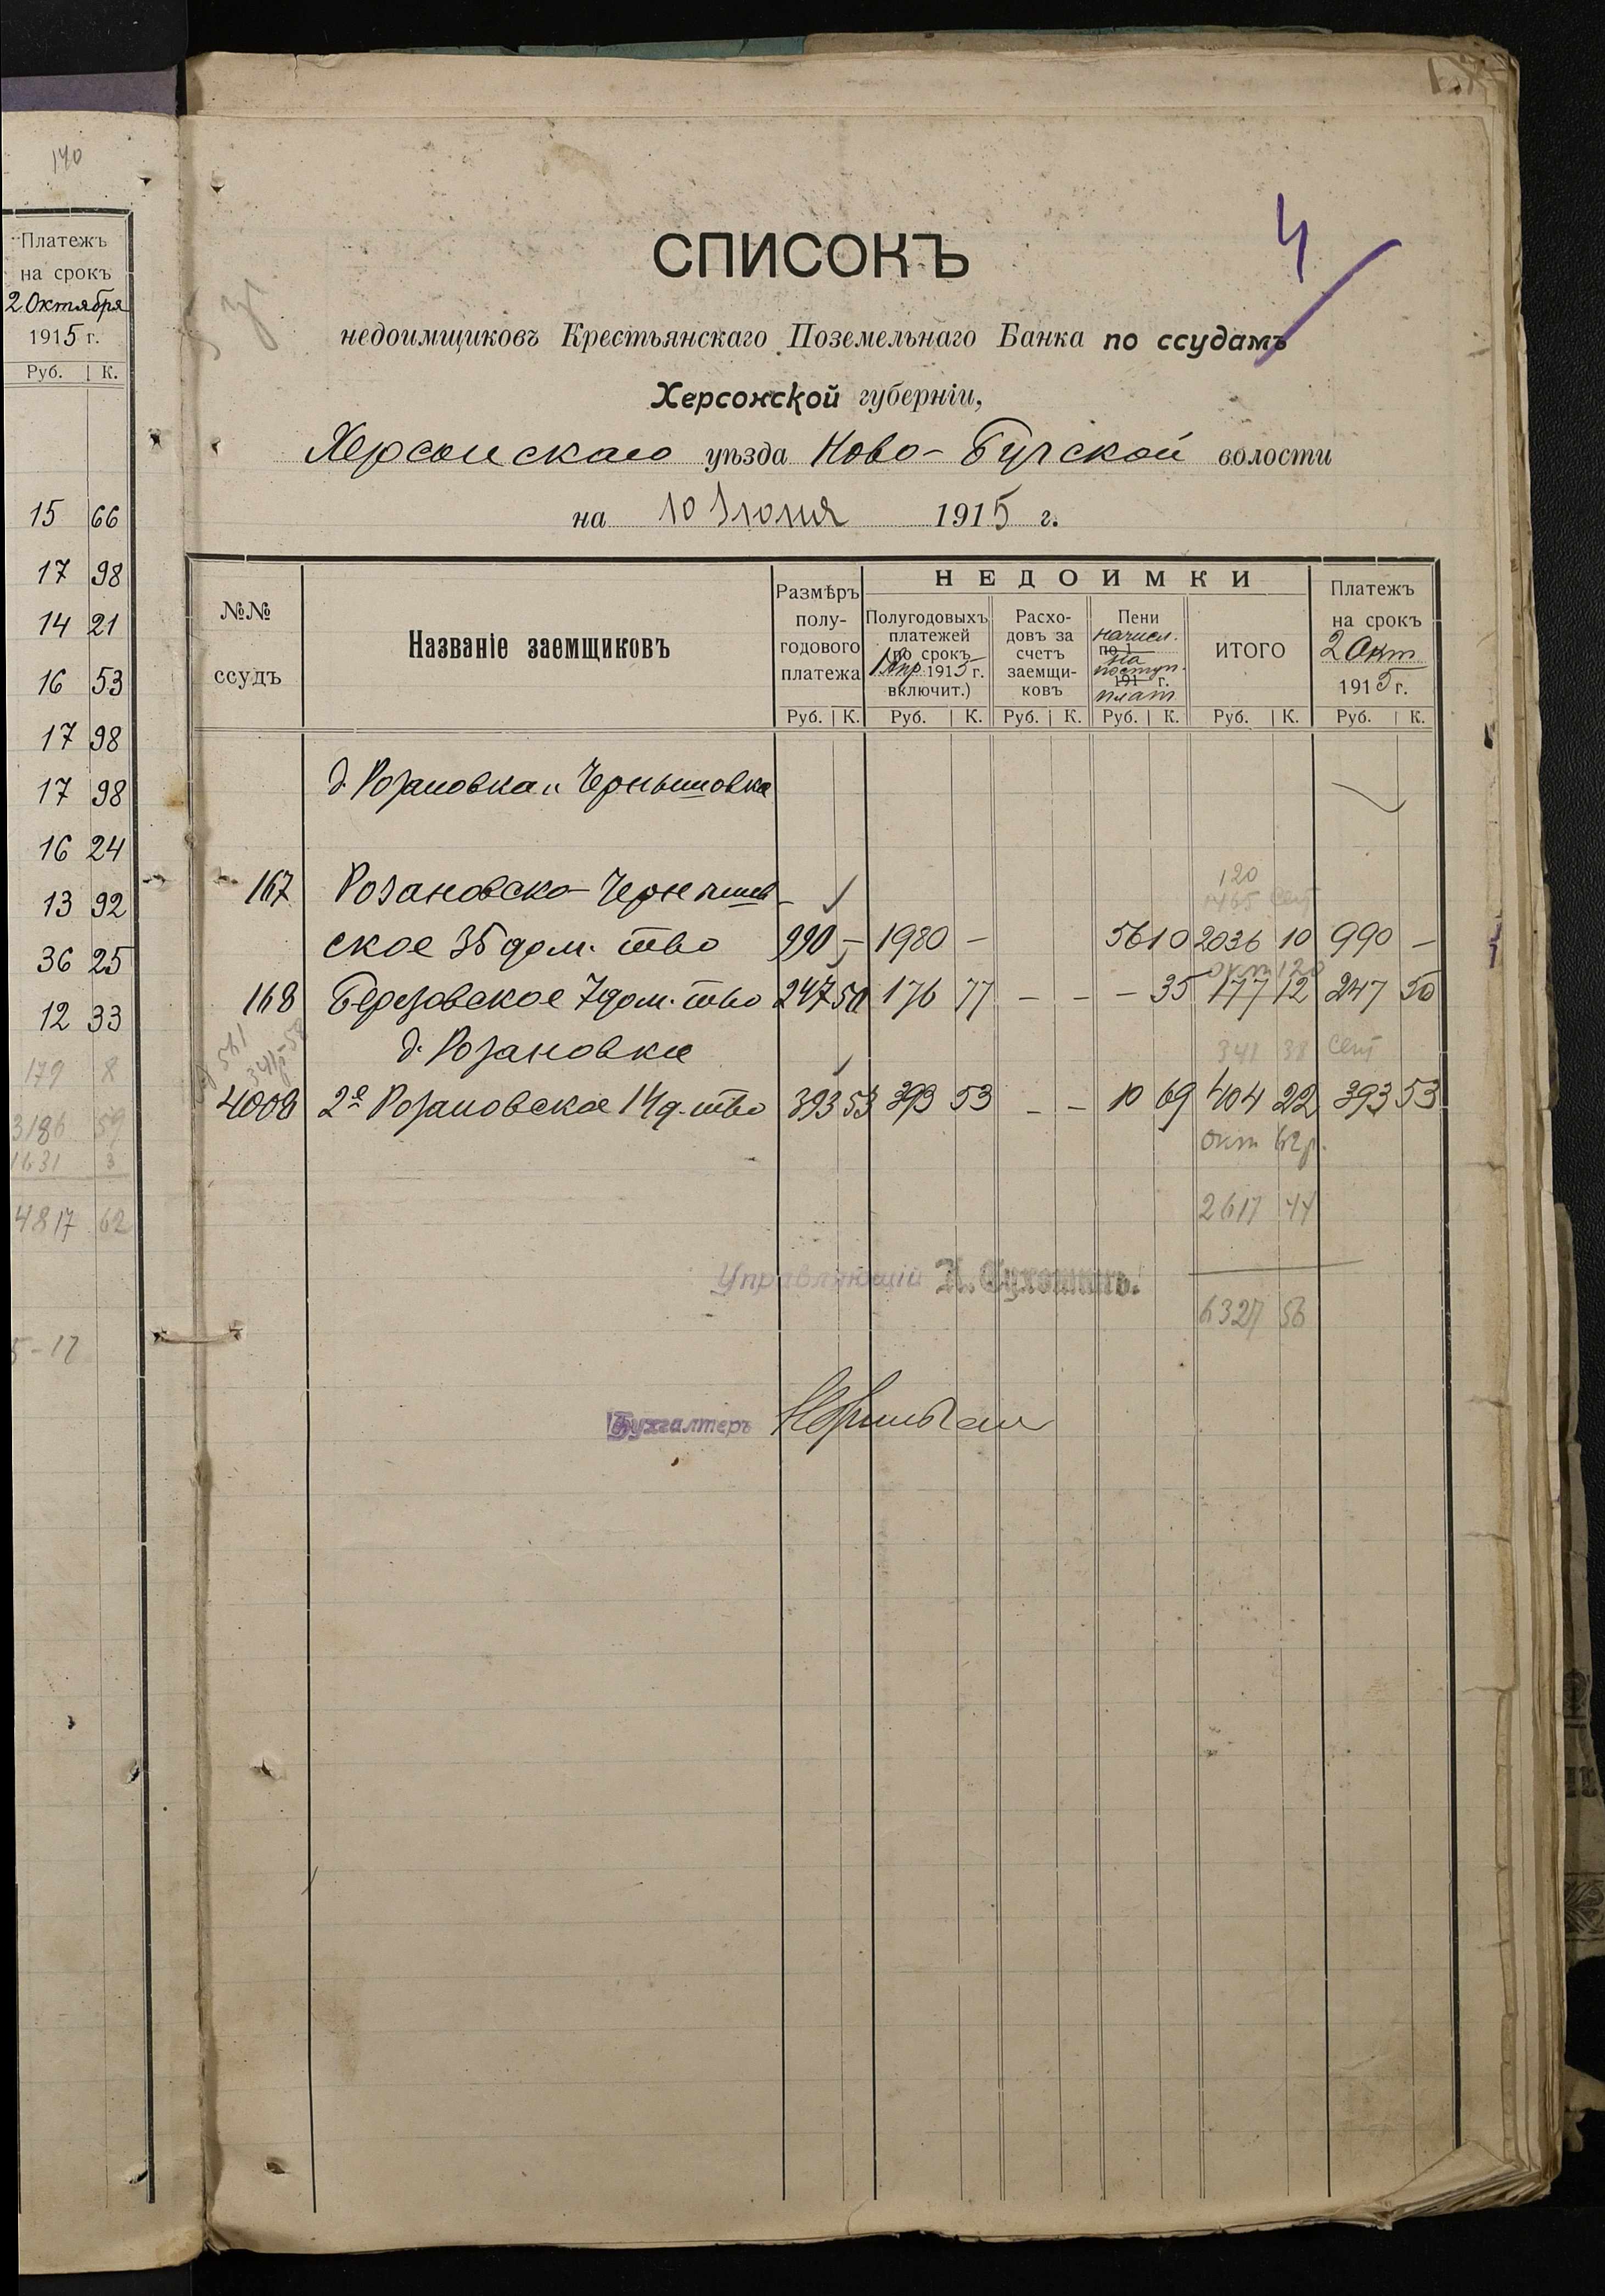 140
Платежъ
на срокъ
2 Октября
1915 г.
Руб. К.
15 66
17 98
14 21
16 53
17 98
17 98
16 24
13 92
36 25
12 33
179 8
3186 59
1631 3
4817 62
5-17
4
СПИСОКЪ
недоимщиковъ Крестьянскаго Поземельнаго Банка по ссудамъ
Херсонской губерніи,
Херсонскаго уѣзда Ново-Бугской волости
на 10 Іюля 1915 г.
№№ ссудъ
Названіе заемщиковъ
Размѣръ полу-
годового
платежа
Руб. К.
НЕДОИМКИ
Полугодовыхъ
платежей
(по срокъ
1 Апр. 1915 г.
включит.)
Руб. К.
Расхо-
довъ за
счетъ
заемщи-
ковъ
Руб. К.
Пени
начисл.
по 1
на
поступ.
191 г.
плат
Руб. К.
ИТОГО
Руб. К.
Платежъ
на срокъ
2 Окт
1915 г.
Руб. К.
д. Розановка и Чернышовка
120
1465 сент
167 Розановско-Чернышев-
ское 35 дом. тво 990 - 1980 - 56 10 2036 10 990 -
окт 120
168 Березовское 7 дом. тво 247 50 176 77 - - - 35 177 12 247 50
д. Розановка
341 38 сент
4008 2е Розановское 14 д. тво 393 53 393 53 - - 10 69 404 22 393 53
окт 62 р.
2617 44
Управляющій
6327 56
Бухгалтеръ